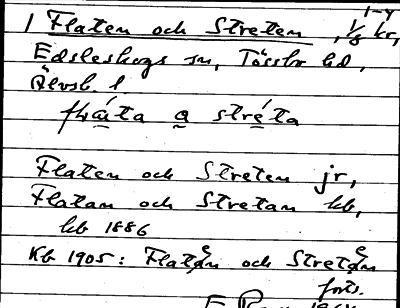 1 Flaten och Streten, 1/8 kr,
1-4
Edsleskogs sn, Tössbo hd,
Älvsb. l.
flata a streta
Flaten och Streten jr,
Flatan och Stretan kb,
kb 1886
Kb 1905: Flatan och Stretan
e e
forts.